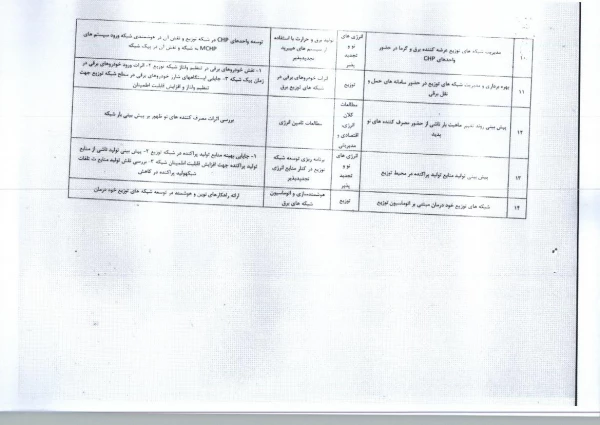 ۱۰
مدیریت شبکه های توزیع عرضه کننده برق و گرما در حضور
واحدهای CHP
انرژی های
نو و
تجدید
پذیر
تولید برق و حرارت با استفاده
از سیستم های هیبرید
تجدیدپذیر
توسعه واحدهای CHP در شبکه توزیع و نقش آن در هوشمندی شبکه ورود سیستم های
MCHP به شبکه و نقش آن در پیک شبکه
۱۱
بهره برداری و مدیریت شبکه های توزیع در حضور سامانه های حمل و
نقل برقی
توزیع
اثرات خودروهای برقی در
شبکه های توزیع برق
۱- نقش خودروهای برقی در تنظیم ولتاژ شبکه توزیع ۲- اثرات ورود خودروهای برقی در
زمان پیک شبکه ۳- جایابی ایستگاههای شارژ خودروهای برقی در سطح شبکه توزیع جهت
تنظیم ولتاژ و افزایش قابلیت اطمینان
۱۲
پیش بینی روند تغییر ماهیت بار ناشی از حضور مصرف کننده های نو
پدید
مطالعات
کلان
انرژی،
اقتصادی و
مدیریتی
مطالعات تامین انرژی
بررسی اثرات مصرف کننده های نو ظهور بر پیش بینی بار شبکه
۱۳
پیش بینی تولید منابع تولید پراکنده در محیط توزیع
انرژی های
نو و
تجدید
پذیر
برنامه ریزی توسعه شبکه
توزیع در کنار منابع انرژی
تجدیدپذیر
۱- جایابی بهینه منابع تولید پراکنده در شبکه توزیع ۲- پیش بینی تولید ناشی از منابع
تولید پراکنده جهت افزایش قابلیت اطمینان شبکه ۳- بررسی نقش تولید منابع
پراکنده در کاهش
۱۴
شبکه های توزیع خود درمان مبتنی بر اتوماسیون توزیع
توزیع
هوشمندسازی و اتوماسیون
شبکه های برق
ارائه راهکارهای نوین و هوشمند در توسعه شبکه های توزیع خود درمان